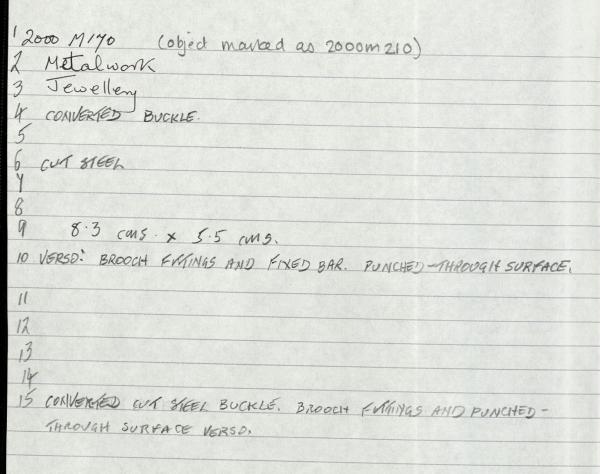 1 2000 M170 (object marked as 2000m210)
2 Metalwork
3 Jewellery
4 CONVERTED BUCKLE.
5
6 CUT STEEL
7
8
9 8.3 cms. x 5.5 cms.
10 VERSO: BROOCH FITTINGS AND FIXED BAR. PUNCHED-THROUGH SURFACE.
11
12
13
14
15 CONVERTED CUT STEEL BUCKLE. BROOCH FITTINGS AND PUNCHED-
THROUGH SURFACE VERSO.